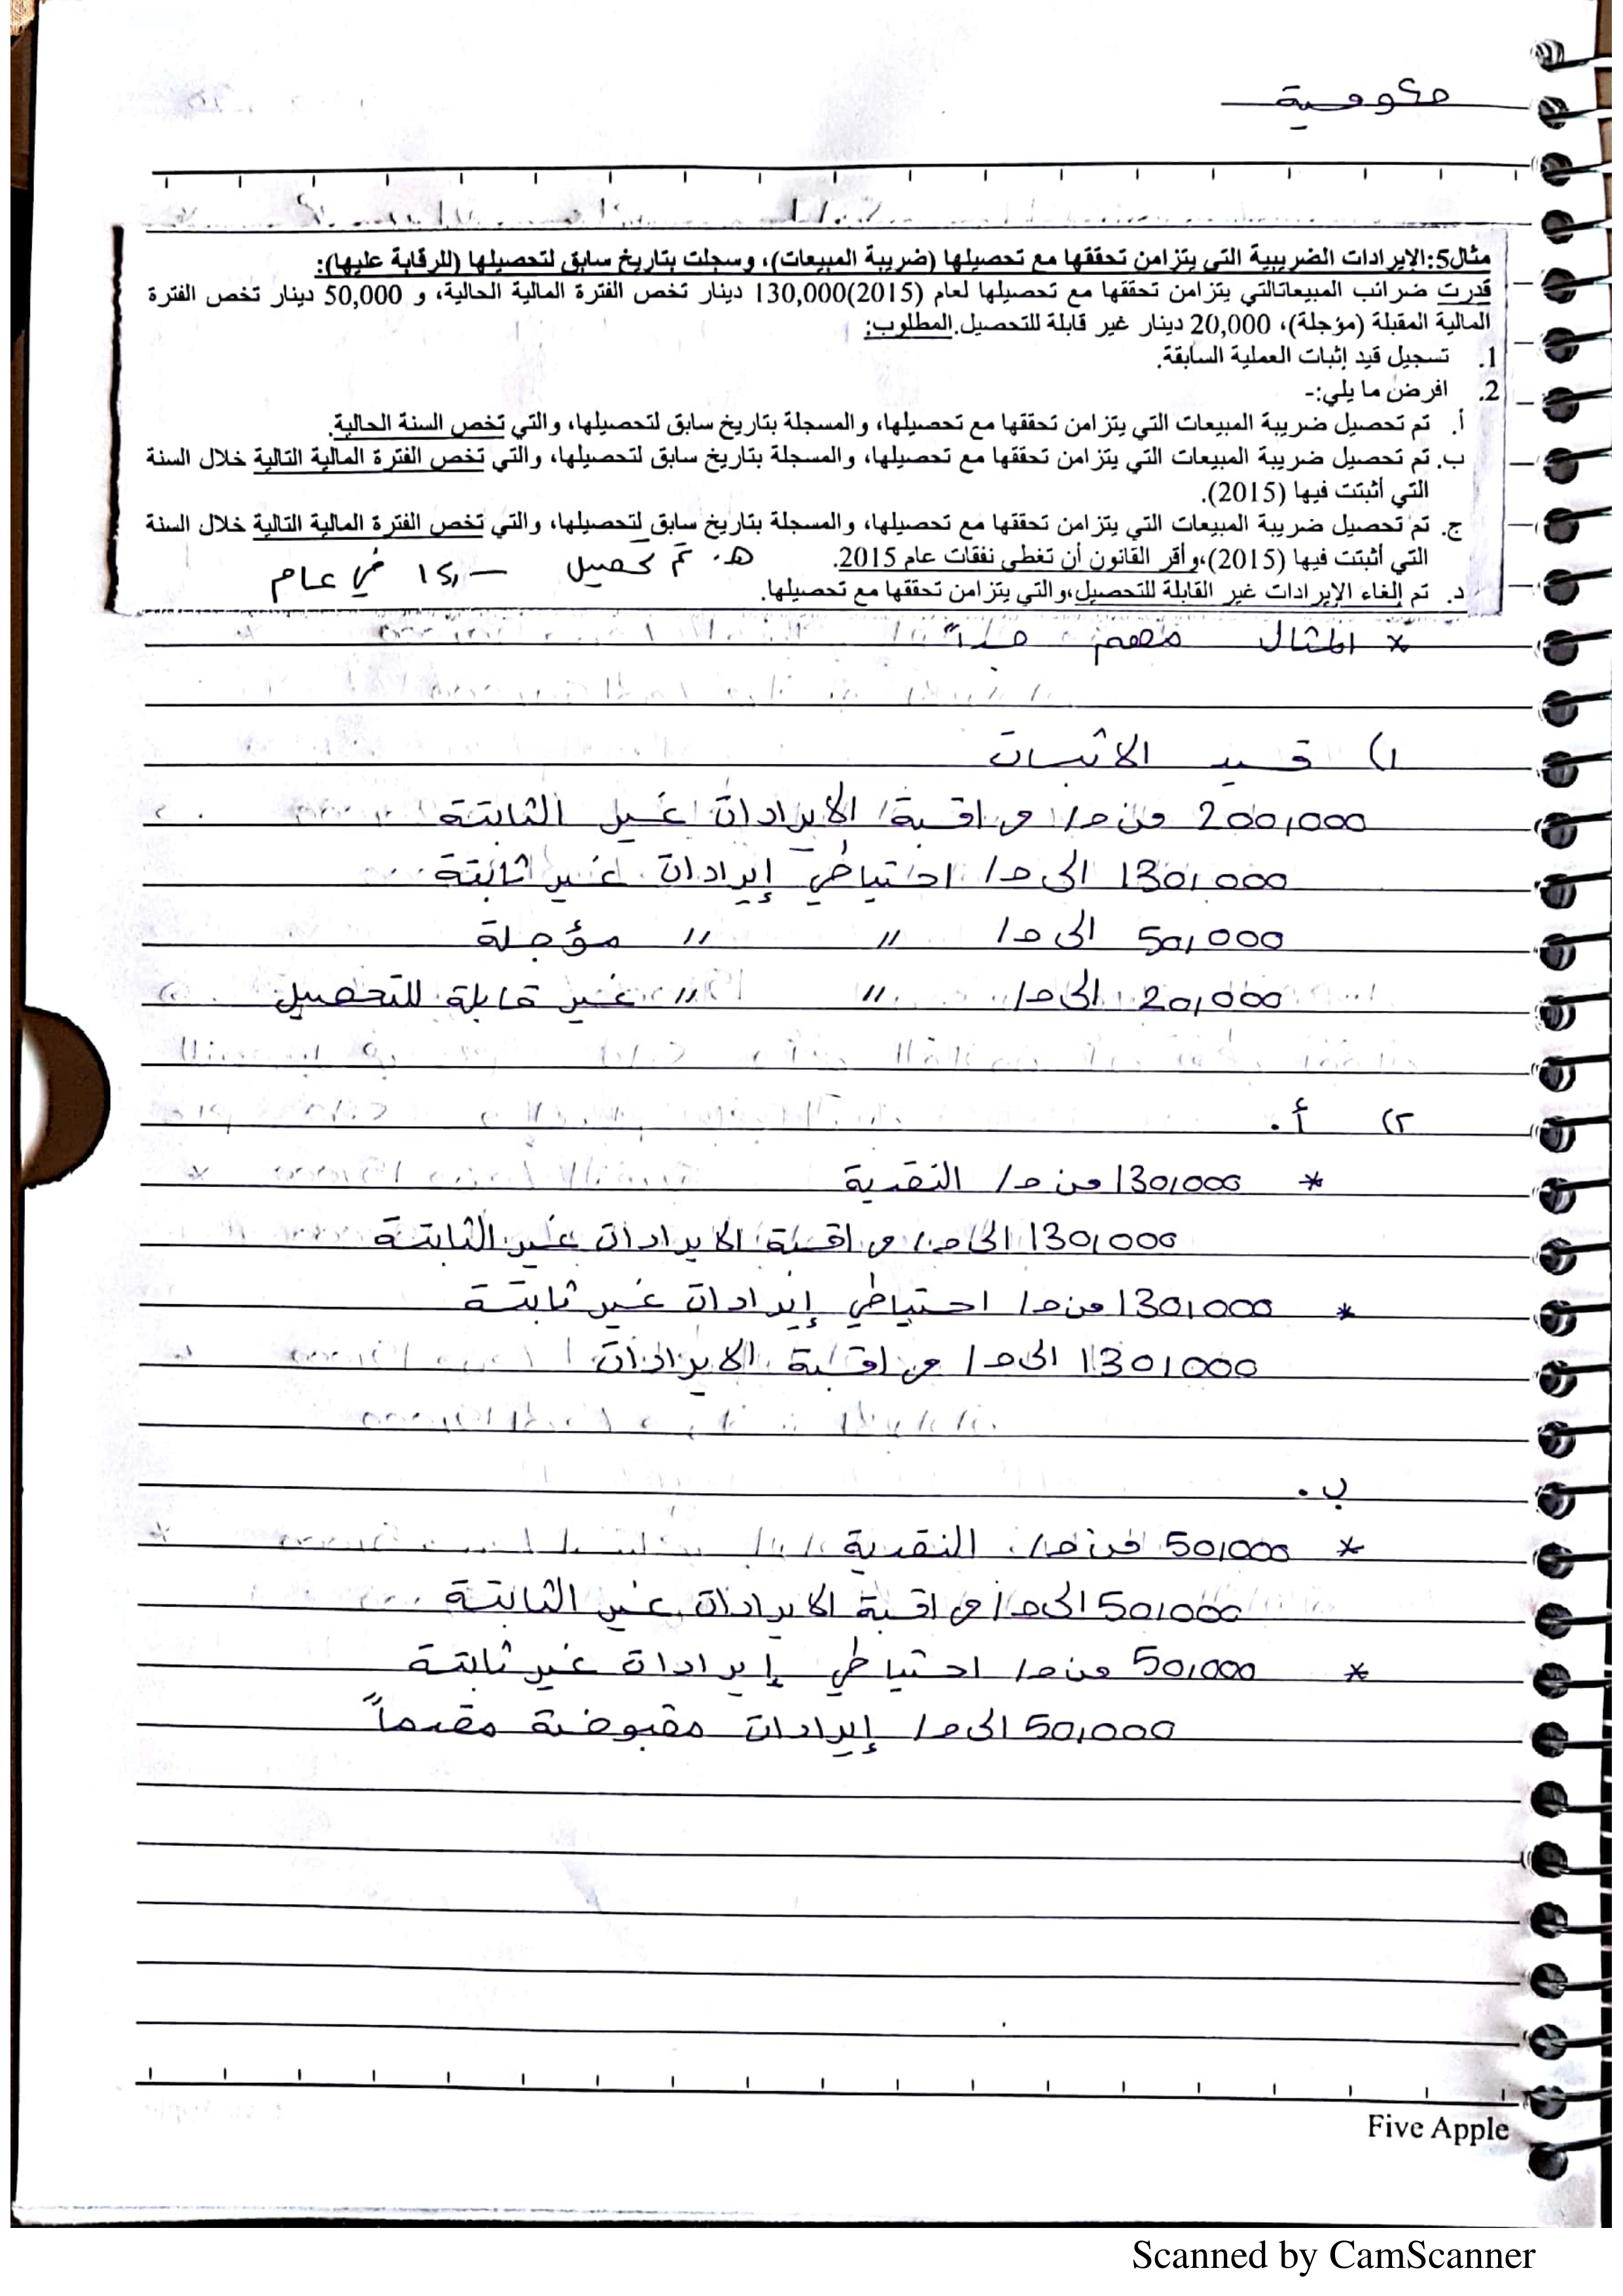 حكومية
مثال5:الإيرادات الضريبية التي يتزامن تحققها مع تحصيلها (ضريبة المبيعات)، وسجلت بتاريخ سابق لتحصيلها (للرقابة عليها):
قدرت ضرائب المبيعاتالتي يتزامن تحققها مع تحصيلها لعام (2015)130,000 دينار تخص الفترة المالية الحالية، و 50,000 دينار تخص الفترة
المالية المقبلة (مؤجلة)، 20,000 دينار غير قابلة للتحصيل.المطلوب:
1. تسجيل قيد إثبات العملية السابقة.
2. افرض ما يلي:-
أ. تم تحصيل ضريبة المبيعات التي يتزامن تحققها مع تحصيلها، والمسجلة بتاريخ سابق لتحصيلها، والتي تخص السنة الحالية.
ب. تم تحصيل ضريبة المبيعات التي يتزامن تحققها مع تحصيلها، والمسجلة بتاريخ سابق لتحصيلها، والتي تخص الفترة المالية التالية خلال السنة
التي أثبتت فيها (2015).
ج. تم تحصيل ضريبة المبيعات التي يتزامن تحققها مع تحصيلها، والمسجلة بتاريخ سابق لتحصيلها، والتي تخص الفترة المالية التالية خلال السنة
التي أثبتت فيها (2015)،وأقر القانون أن تغطي نفقات عام 2015.
هـ. تم تحصيل في عام
د. تم إلغاء الإيرادات غير القابلة للتحصيل،والتي يتزامن تحققها مع تحصيلها.
* المثال مهم جداً
١) قيد الاثبات
200,000 من ح/ مراقبة الايرادات غير الثابتة
130,000 الى ح/ احتياطي إيرادات غير ثابتة
50,000 الى ح/ " " مؤجلة
20,000 الى ح/ " " غير قابلة للتحصيل
٢) أ.
* 130,000 من ح/ النقدية
130,000 الى ح/ مراقبة الايرادات غير الثابتة
* 130,000 من ح/ احتياطي إيرادات غير ثابتة
130,000 الى ح/ مراقبة الايرادات
ب.
* 50,000 من ح/ النقدية
50,000 الى ح/ مراقبة الايرادات غير الثابتة
* 50,000 من ح/ احتياطي إيرادات غير ثابتة
50,000 الى ح/ إيرادات مقبوضة مقدماً
Five Apple
Scanned by CamScanner